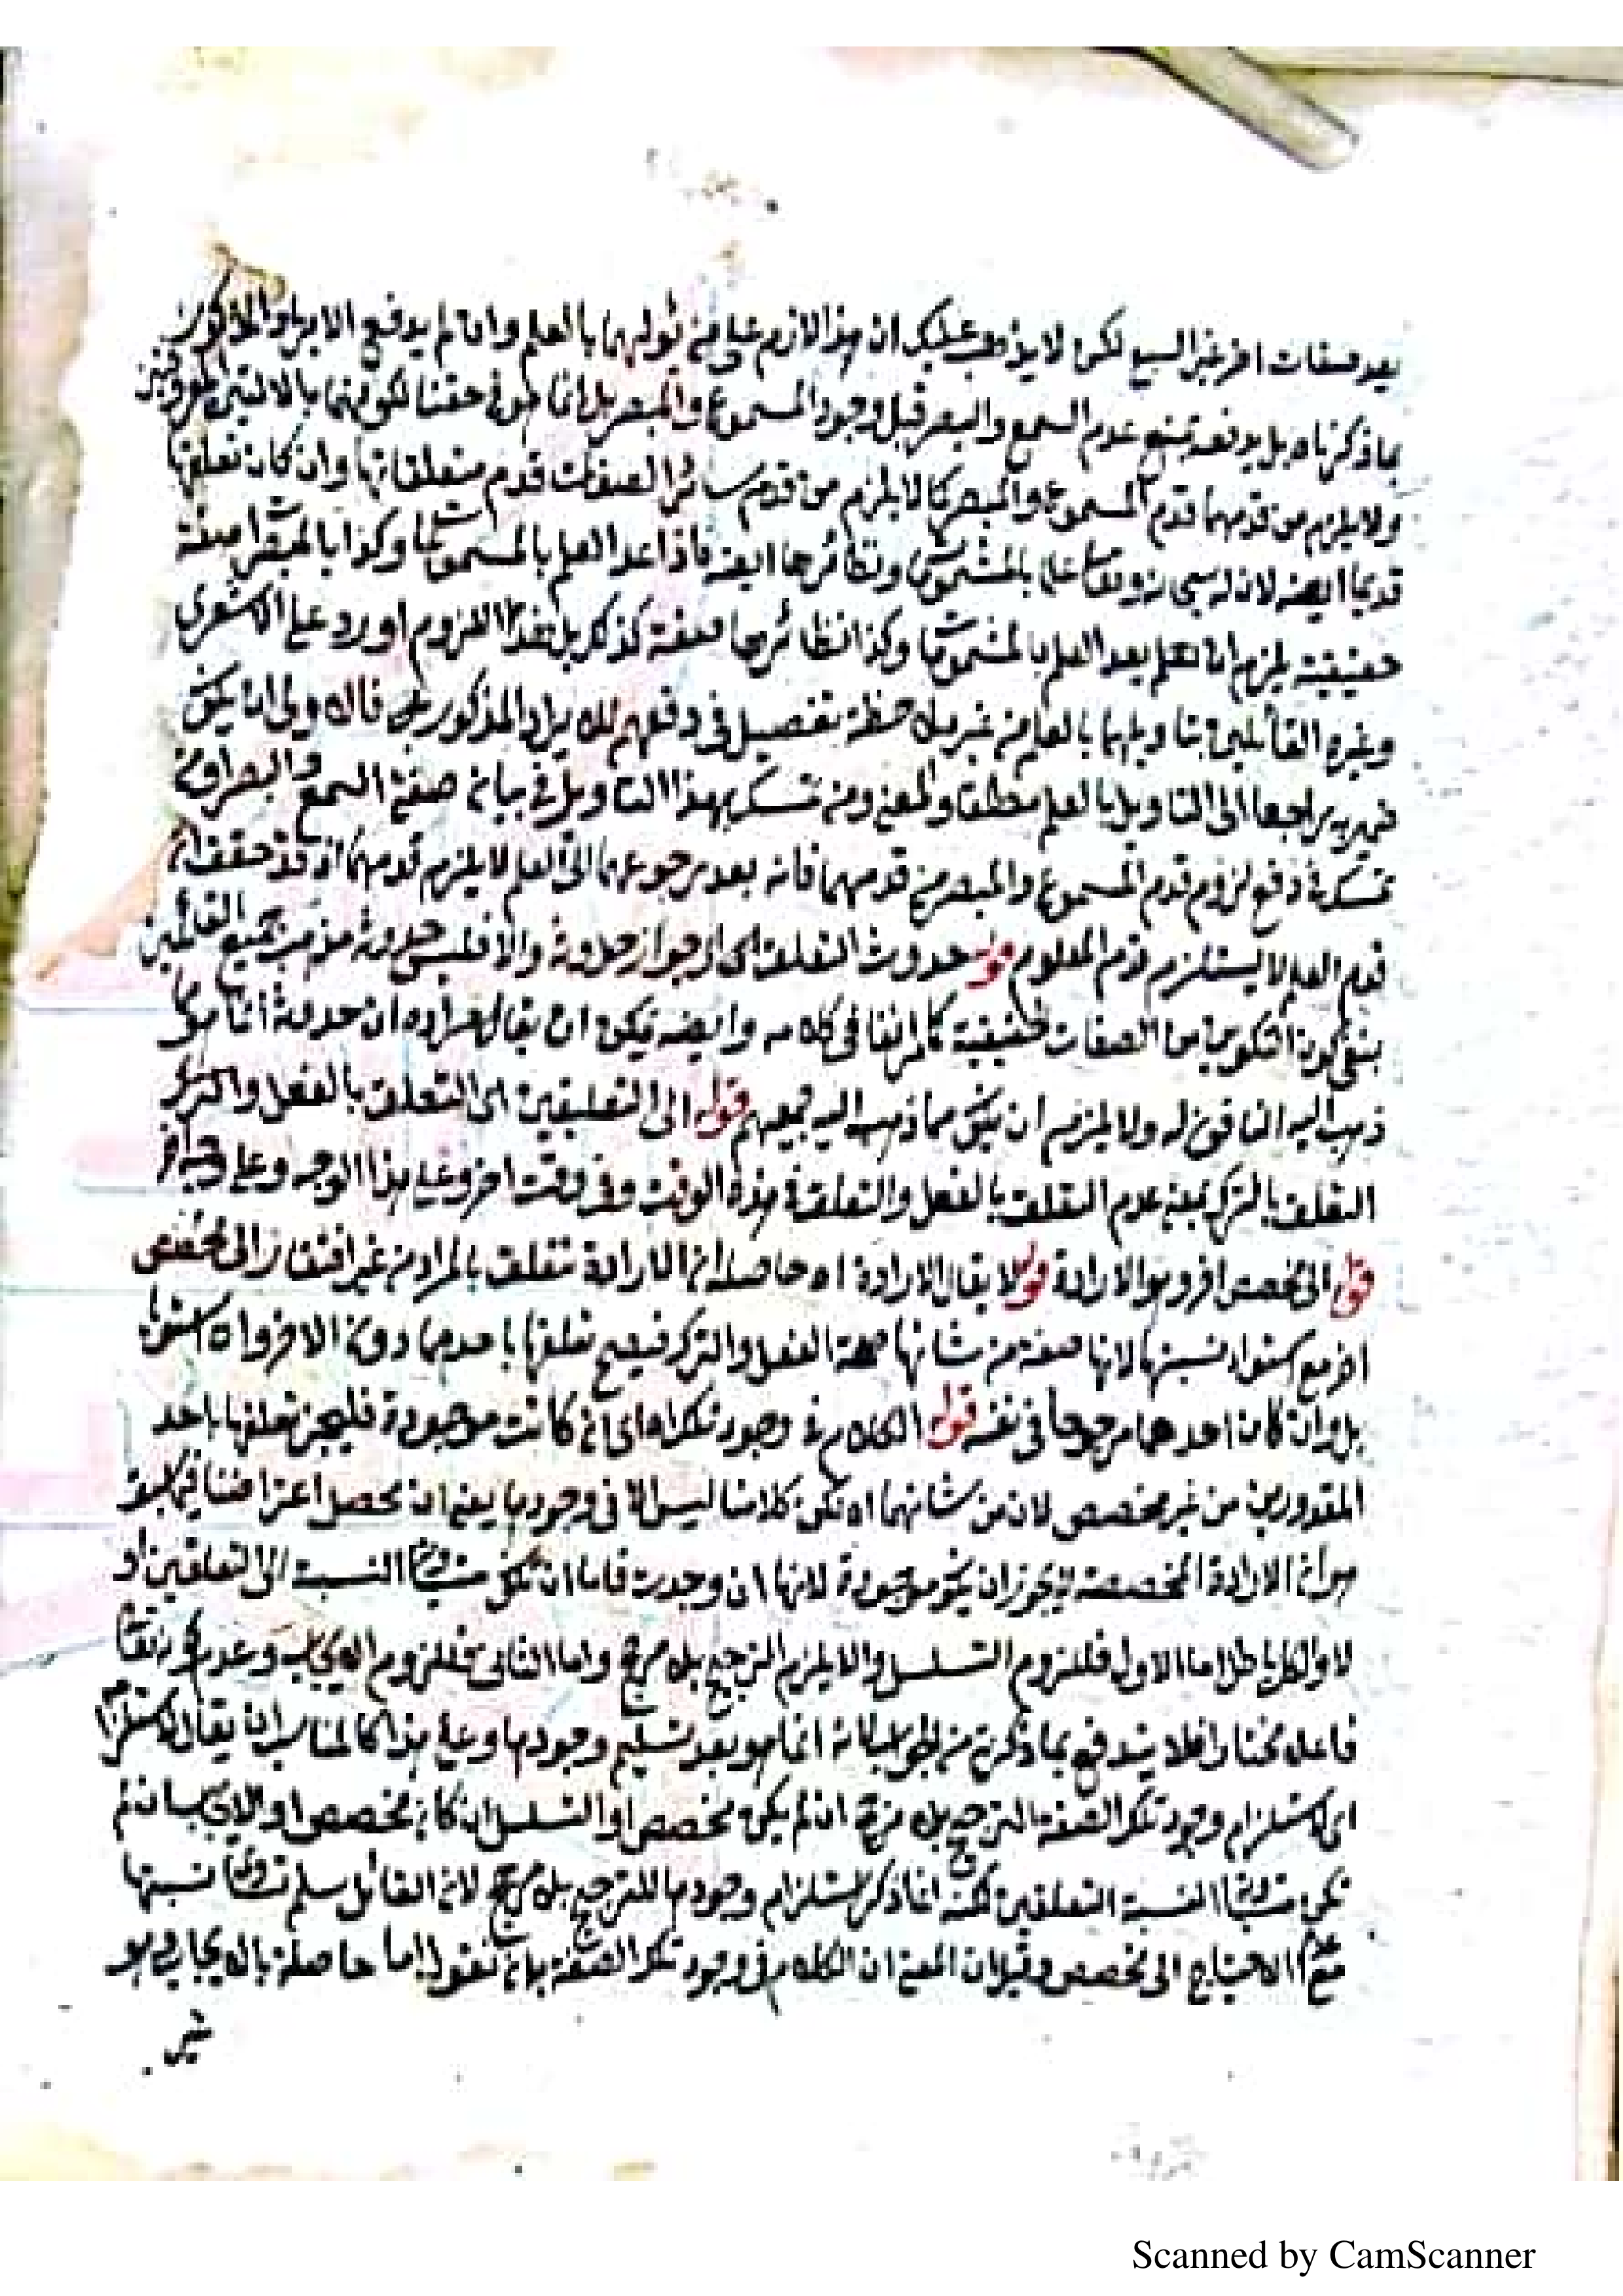 يعد صفات اخر غير السبع لكن لا يذهب عليك ان هذا لازم على من تولهما بالعلم وان لم يدفع الايراد المذكور
بما ذكرناه بل يدفعه بمنع عدم السمع والبصر قبل وجود المسموع والمبصر بل انما هو في حقنا لكونهما بالالتين المعروفتين
ولا يلزم من قدمهما قدم المسموع والمبصر كما لا يلزم من قدم سائر الصفات قدم متعلقاتها وان كان تعلقها
قديما ايضه لانه علما بالمشمومات ونظائرها ايضه فاذا عد العلم بالمسموعات وكذا بالمبصرات صفة
حقيقية يلزم ان يعد العلم بالمشمومات وكذا نظائرها صفة كذلك بل هذا اللزوم اورد على الاشعرى
وغيره القائلين بتاويلهما بالعلم من غير ملاحظة تفصيل فى دفعهم للايراد المذكور فالاولى ان يكون
ضمير به راجعا الى التاويل بالعلم مطلقا والمعنى ومن تمسك بهذا التاويل في بيان صفة السمع والبصر اومن
تمسك به في دفع لزوم قدم المسموع والمبصر من قدمهما فانه بعد رجوعهما الى العلم لا يلزم قدمهما اذ قد حقق ان
قدم العلم لا يستلزم قدم المعلوم قوله حدوث التعلق اى جواز حدوثه والا فليس حدوثه مذهب جميع القائلين
بنفى كون التكوين من الصفات الحقيقية كما مر انفا فى كلامه وايضه يمكن ان يقال مراده ان حدوثه انما هو
ذهب اليه النافون له ولا يلزم ان يكون مما ذهب اليه جميعهم قوله الى التعلقين اى التعلق بالفعل والترك
التعلق بالترك بمعنى عدم التعلق بالفعل والتعلق في هذه الوقت وفى وقت اخر وعلى هذا الوجه وعلى وجه اخر
قوله الى مخصص اخر وهو الارادة قوله لا يقال الارادة اه حاصله ان الارادة تتعلق بالمراد من غير افتقار الى مخصص
اخر مع استواء نسبتها لانها صفة من شانها صحة الفعل والترك فيصح تعلقها باحدهما دون الاخر وان استوتا
بل وان كان احدهما مرجوحا فى نفسه قوله الكلام فى وجود تلك اه اى ان كانت موجودة فليجز تعلقها باحد
المقدورين من غير مخصص لان من شانهما اه لكن كلامنا ليس الا فى وجودها يعنى ان محصل اعتراضنا
هو ان الارادة المخصصة لا يجوز ان تكون موجودة لانها ان وجدت فاما ان تكون متساوية النسبة الى التعلقين او
لا والكل باطل اما الاول فللزوم التسلسل والا يلزم الترجيح بلا مرجح واما الثانى فللزوم الايجاب وعدم كونه تعالى
فاعلا مختارا فلا يندفع بما ذكرته من الجواب لانه انما هو بعد تسليم وجودها وعلى هذا كالمناسب ان يقال لاستلزام
اى لاستلزام وجود تلك الصفة الترجيح بلا مرجح ان لم يكن مخصص او التسلسل ان كان مخصص او الايجاب ان لم
تكن متساوية النسبة التعلقين لكنه انما ذكر استلزام وجودها للترجيح بلا مرجح لان القائل سلم تساوى نسبتها
مع عدم الاحتياج الى مخصص وقيل ان المعنى ان الكلام فى وجود تلك الصفة بلا نقول اما حاصلة بالايجاب وهو
Scanned by CamScanner